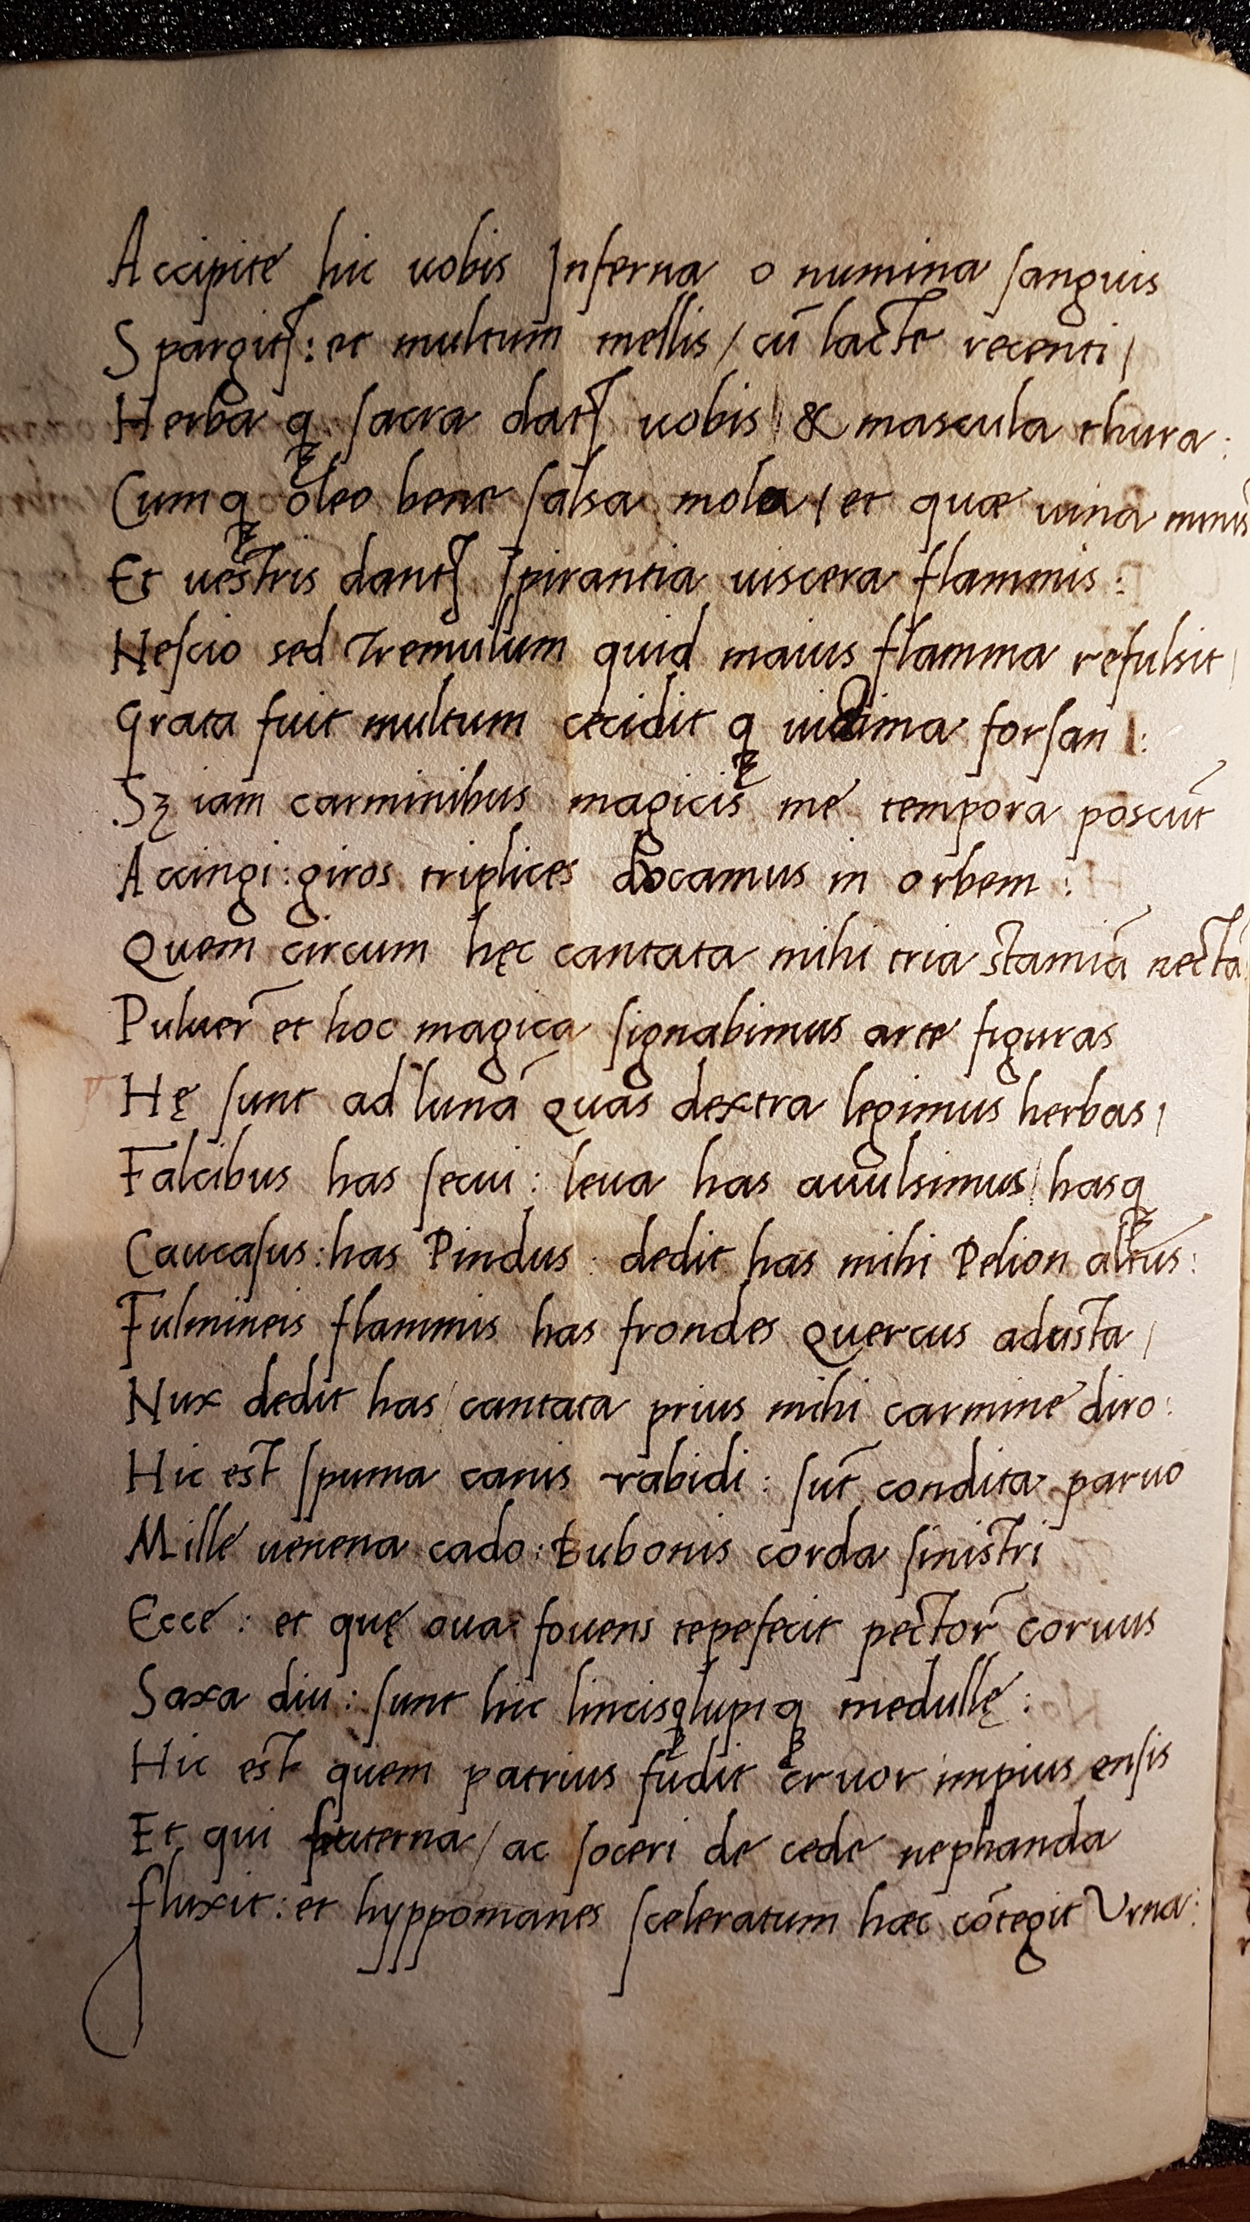 Accipite hic uobis Inferna o numina sanguis
Spargitʃ: et multum mellis / cū lacte recenti /
Herba qꝫ sacra datʃ uobis / & mascula thura:
Cumqꝫ oleo bene salsa mola / et quæ uina
Et uestris dantʃ spirantia uiscera flammis:
Nescio sed tremulum quid maius flamma refulsit /
Grata fuit multum cecidit qꝫ uictima forsan /:
Sꝫ iam carminibus magicis me tempora poscūt
Accingi: giros triplices docamus in orbem:
Quem circum hęc cantata mihi tria stamīa nectā
Puluer̄ et hoc magica signabimus arte figuras
Hę sunt ad lunā quas dextra legimus herbas /
Falcibus has secui: leua has auulsimus / hasqꝫ
Caucasus: has Pindus: dedit has mihi Pelion altus:
Fulmineis flammis has frondes quercus adusta /
Nux dedit has / cantata prius mihi carmine diro:
Hic est spuma canis rabidi: sūt condita paruo
Mille uenena cado: Bubonis corda sinistri
Ecce: et quę oua fouens tepefecit pector̄ coruus
Saxa diu: sunt hic lincisqꝫ lupiqꝫ medullę:
Hic est quem patrius fudit cruor impius ensis
Et qui fraterna / ac soceri de cede nephanda
fluxit: et hyppomanes sceleratum hæc cōtegit Vrna: